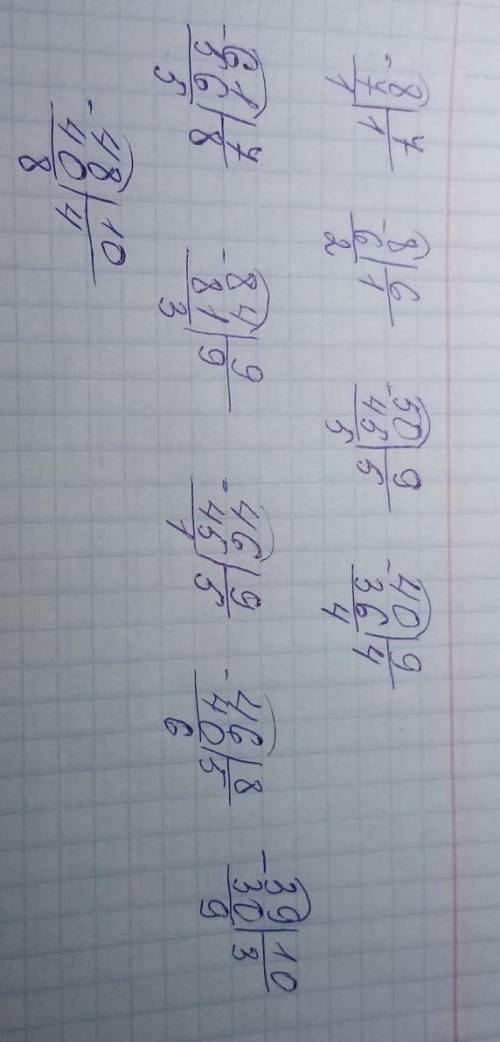 -8|7 -8|6 -50|9 -40|9
7|1 6|1 45|5 36|4
1 2 5 4
-61|7 -84|9 -46|9 -46|8 -39|10
56|8 81|9 45|5 40|5 30|3
5 3 1 6 9
-48|10
40|4
8